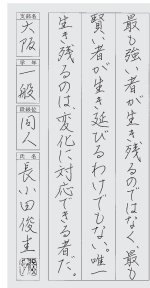 最も強い者が生き残るのではなく、最も
賢い者が生き延びるわけでもない。唯一
生き残るのは、変化に対応できる者だ。
支部名
大阪
学年
一般
段級位
同人
氏名
長小田俊圭